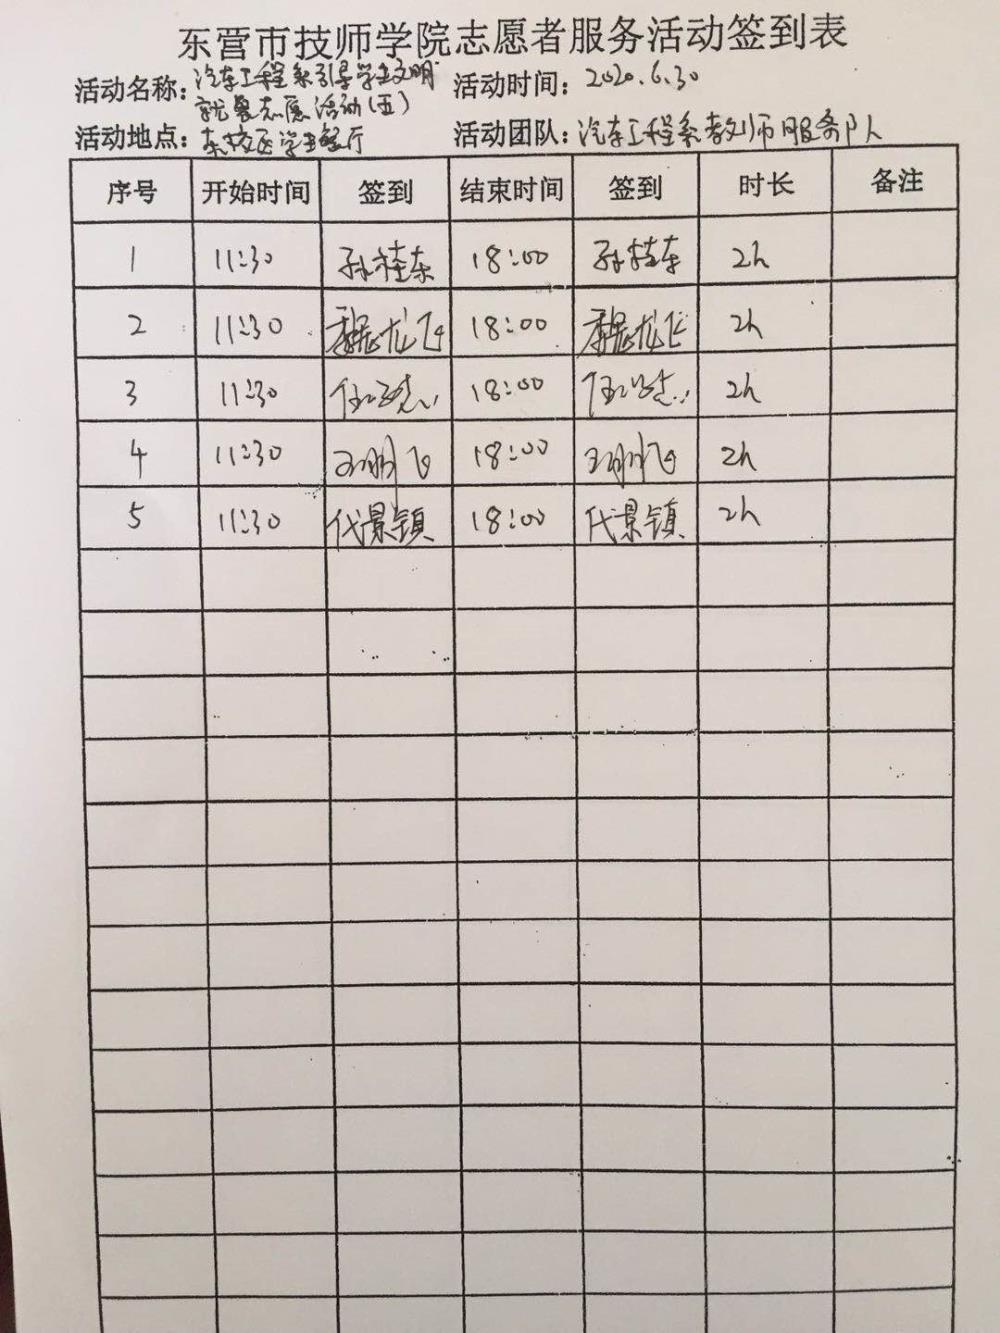 东营市技师学院志愿者服务活动签到表
活动名称：汽车工程系引导学生文明 活动时间：2020.6.30
就餐志愿活动(五)
活动地点：东校区学生餐厅 活动团队：汽车工程系教师服务队
序号 开始时间 签到 结束时间 签到 时长 备注
1 11:30 孙桂东 18:00 孙桂东 2h
2 11:30 龙飞 18:00 龙飞 2h
3 11:30 任 18:00 任 2h
4 11:30 王鹏飞 18:00 王鹏飞 2h
5 11:30 代景镇 18:00 代景镇 2h